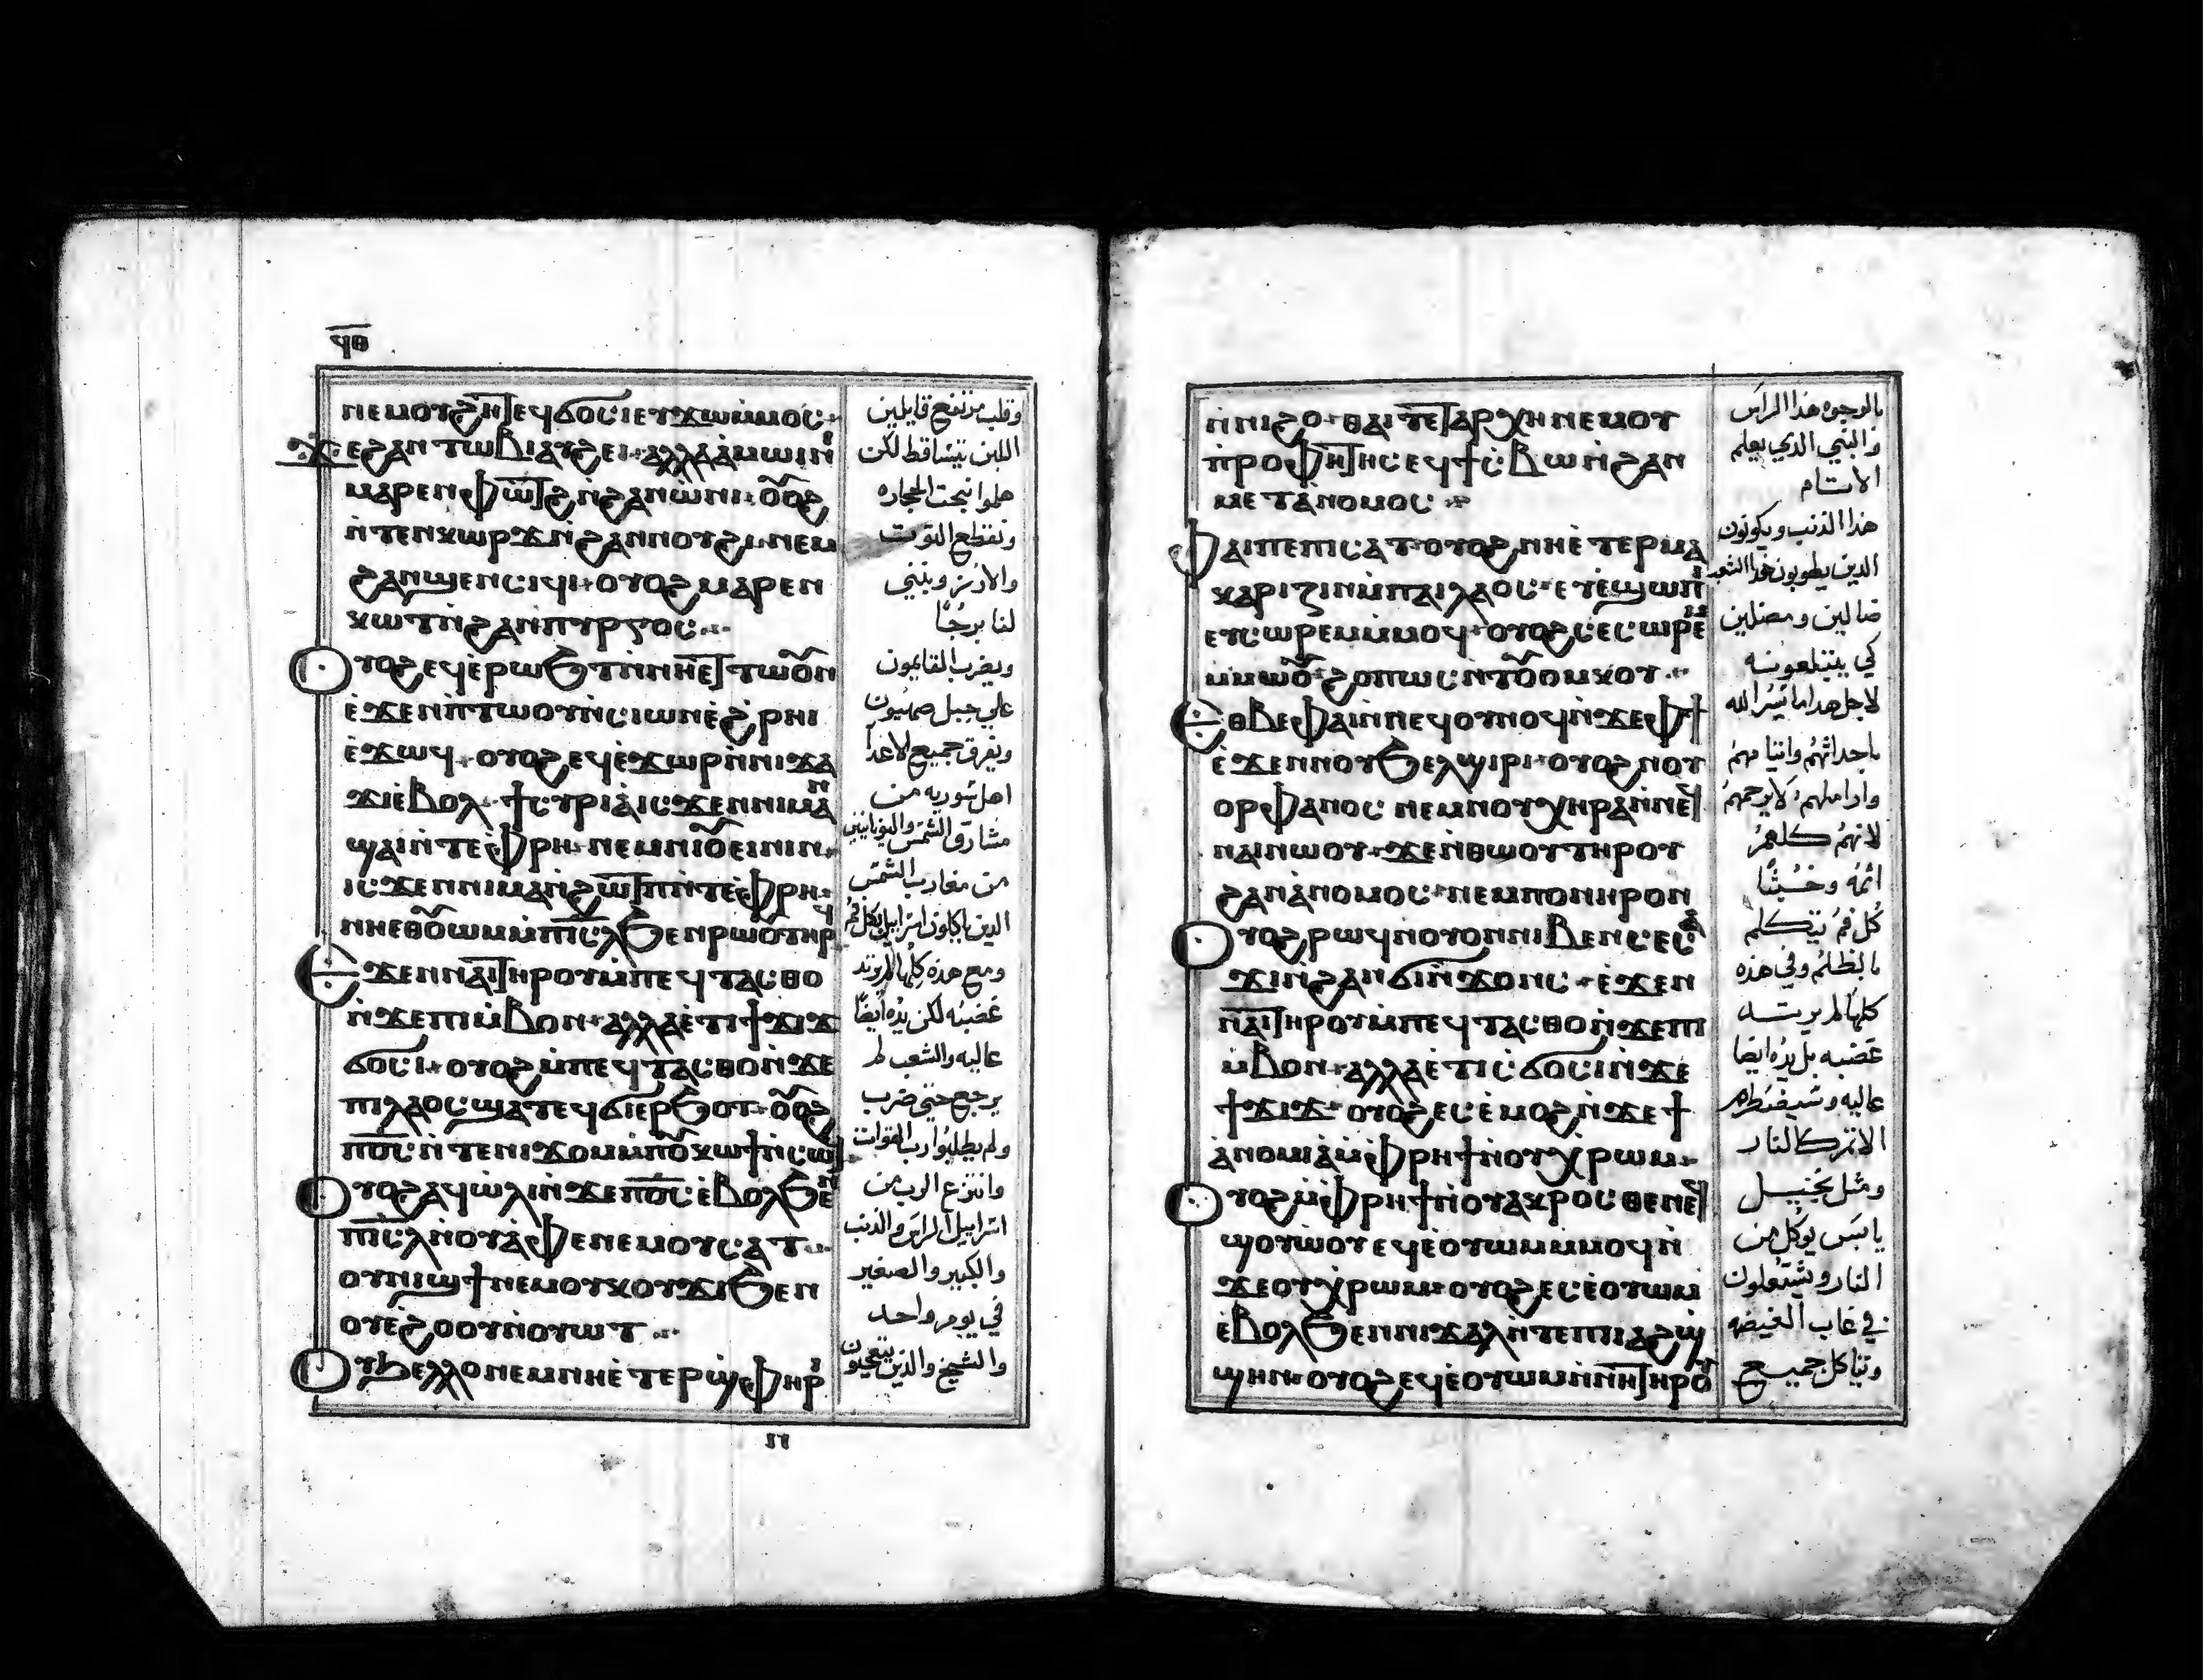 ϥⲑ
ⲛⲉⲙⲟⲩϩⲏⲧ ⲉϥϭⲟⲥⲓ ⲉⲩϫⲱ ⲙ̀ⲙⲟⲥ
ϫⲉ ϩⲁⲛⲧⲱⲃⲓ ⲁⲩϩⲉⲓ ⲁⲗⲗⲁ ⲁ̀ⲙⲱⲓⲛⲓ
ⲙⲁⲣⲉⲛⲫⲱⲧϩ ⲛ̀ϩⲁⲛⲱ̀ⲛⲓ ⲟⲩⲟϩ
ⲛ̀ⲧⲉⲛⲭⲱⲣϫ ⲛ̀ϩⲁⲛⲛⲟⲩϩⲓ ⲛⲉⲙ
ϩⲁⲛϣⲉⲛⲥⲓϥⲓ ⲟⲩⲟϩ ⲙⲁⲣⲉⲛ
ⲭⲱⲧ ⲛ̀ϩⲁⲛⲡⲩⲣⲅⲟⲥ
ⲟⲩⲟϩ ⲉϥⲉ̀ⲣⲱϧⲧ ⲛ̀ⲛⲏⲉⲧⲧⲱⲟⲩⲛ
ⲉ̀ϫⲉⲛ ⲡⲧⲱⲟⲩ ⲛ̀ⲥⲓⲱⲛ ⲉ̀ϩ̀ⲣⲏⲓ
ⲉ̀ϫⲱϥ ⲟⲩⲟϩ ⲉϥⲉ̀ϫⲱⲣ ⲛ̀ⲛⲓϫⲁ
ϫⲓ ⲉ̀ⲃⲟⲗ ϯⲥⲩⲣⲓⲁ̀ ⲓⲥϫⲉⲛ ⲛⲓⲙⲁⲛ̀
ϣⲁⲓ ⲛ̀ⲧⲉ ⲫ̀ⲣⲏ ⲛⲉⲙ ⲛⲓⲟⲩⲉⲓⲛⲓⲛ
ⲓⲥϫⲉⲛ ⲛⲓⲙⲁⲛ̀ϩⲱⲧⲡ ⲛ̀ⲧⲉ ⲫ̀ⲣⲏ
ⲛⲏⲉⲑⲟⲩⲱⲙ ⲙ̀ⲡⲓⲥⲗ ϧⲉⲛ ⲣⲱⲟⲩ ⲧⲏⲣϥ
ⲉ̀ϫⲉⲛ ⲛⲁⲓ ⲧⲏⲣⲟⲩ ⲙ̀ⲡⲉϥⲧⲁⲥⲑⲟ
ⲛ̀ϫⲉ ⲡⲓⲙ̀ⲃⲟⲛ ⲁⲗⲗⲁ ⲉ̀ⲧⲓ ϯϫⲓϫ
ϭⲟⲥⲓ ⲟⲩⲟϩ ⲙ̀ⲡⲉϥⲧⲁⲥⲑⲟ ⲛ̀ϫⲉ
ⲡⲓⲗⲁⲟⲥ ϣⲁⲧⲉϥϭⲓ ⲉⲣϧⲟⲧ ⲟⲩⲟϩ
ⲡⲟ̅ⲥ̅ ⲛ̀ⲧⲉ ⲛⲓϫⲟⲙ ⲙ̀ⲡⲟⲩⲕⲱϯ ⲛ̀ⲥⲱϥ
ⲟⲩⲟϩ ⲁϥⲱ̀ⲗⲓ ⲛ̀ϫⲉ ⲡⲟ̅ⲥ̅ ⲉ̀ⲃⲟⲗ ϧⲉⲛ
ⲡⲓⲥⲗ ⲛ̀ⲟⲩⲁ̀ⲫⲉ ⲛⲉⲙ ⲟⲩⲥⲁⲧ
ⲟⲩⲛⲓϣϯ ⲛⲉⲙ ⲟⲩⲕⲟⲩϫⲓ ϧⲉⲛ
ⲟⲩⲉ̀ϩⲟⲟⲩ ⲛ̀ⲟⲩⲱⲧ
ⲟⲩϧⲉⲗⲗⲟ ⲛⲉⲙ ⲛⲏⲉ̀ⲧⲉⲣϣⲫⲏⲣⲓ
وقلب مرتفع قايلين
اللبن تتساقط لكن
هلموا ننحت الحجاره
ونقطع التوت
والارز ونبني
لنا برجًا
ويضرب القايمون
علي جبل صهيون
ويفرق جميع الاعدا
اهل سوريه من
مشارق الشمس واليونانيين
من مغارب الشمس
الذين ياكلون اسراييل بكل فم
ومع هذه كلها لم يرتد
غضبه لكن يده ايضًا
عاليه والشعب لم
يرجع حتي ضرب
ولم يطلبوا رب القوات
وانتزع الرب من
اسراييل الراس والذنب
والكبير والصغير
في يوم واحد
والشيخ والذين يتعجبون
ⲛ̀ⲛⲓϩⲟ ⲑⲁⲓ ⲧⲉ ϯⲁⲣⲭⲏ ⲛⲉⲙ ⲟⲩ
ⲡ̀ⲣⲟⲫⲏⲧⲏⲥ ⲉϥϯⲥ̀ⲃⲱ ⲛ̀ϩⲁⲛ
ⲙⲉⲧⲁ̀ⲛⲟⲙⲟⲥ
ⲫⲁⲓ ⲡⲉ ⲡⲓⲥⲁⲧ ⲟⲩⲟϩ ⲛⲏⲉ̀ⲧⲉⲣⲙⲁ
ⲕⲁⲣⲓⲍⲓⲛ ⲙ̀ⲡⲁⲓⲗⲁⲟⲥ ⲉⲩⲉ̀ϣⲱⲡⲓ
ⲉⲩⲥⲱⲣⲉⲙ ⲙ̀ⲙⲟϥ ⲟⲩⲟϩ ⲥⲉⲥⲱⲣⲉⲙ
ⲙ̀ⲙⲱⲟⲩ ϩⲟⲡⲱⲥ ⲛ̀ⲧⲟⲩⲟⲙⲕⲟⲩ
ⲉⲑⲃⲉ ⲫⲁⲓ ⲛ̀ⲛⲉϥⲟⲩⲛⲟϥ ⲛ̀ϫⲉ ⲫϯ
ⲉ̀ϫⲉⲛ ⲛⲟⲩϧⲉⲗϣⲓⲣⲓ ⲟⲩⲟϩ ⲛⲟⲩ
ⲟⲣⲫⲁⲛⲟⲥ ⲛⲉⲙ ⲛⲟⲩⲭⲏⲣⲁ ⲛ̀ⲛⲉϥ
ⲛⲁⲓ ⲛⲱⲟⲩ ϫⲉ ⲛ̀ⲑⲱⲟⲩ ⲧⲏⲣⲟⲩ
ϩⲁⲛⲁ̀ⲛⲟⲙⲟⲥ ⲛⲉⲙ ⲡⲟⲛⲏⲣⲟⲛ
ⲟⲩⲟϩ ⲣⲱϥ ⲛ̀ⲟⲩⲟⲛ ⲛⲓⲃⲉⲛ ⲥⲉⲥⲁ
ϫⲓ ⲛ̀ϩⲁⲛϭⲓⲛ̀ϫⲟⲛⲥ ⲉ̀ϫⲉⲛ
ⲛⲁⲓ ⲧⲏⲣⲟⲩ ⲙ̀ⲡⲉϥⲧⲁⲥⲑⲟ ⲛ̀ϫⲉ ⲡⲓ
ⲙ̀ⲃⲟⲛ ⲁⲗⲗⲁ ⲉ̀ⲧⲓ ⲥ̀ϭⲟⲥⲓ ⲛ̀ϫⲉ
ϯϫⲓϫ ⲟⲩⲟϩ ⲉⲥⲉ̀ⲙⲟϩ ⲛ̀ϫⲉ ϯ
ⲁ̀ⲛⲟⲙⲓⲁ̀ ⲙ̀ⲫⲣⲏϯ ⲛ̀ⲟⲩⲭ̀ⲣⲱⲙ
ⲟⲩⲟϩ ⲙ̀ⲫⲣⲏϯ ⲛ̀ⲟⲩⲁⲕⲣⲟⲥⲑⲉⲛ ⲉϥ
ϣⲟⲩⲱⲟⲩ ⲉϥⲉ̀ⲟⲩⲱⲙ ⲙ̀ⲙⲟϥ ⲛ̀
ϫⲉ ⲟⲩⲭ̀ⲣⲱⲙ ⲟⲩⲟϩ ⲉⲥⲉ̀ⲟⲩⲱⲙ
ⲉ̀ⲃⲟⲗ ϧⲉⲛ ⲛⲓϫⲁⲗ ⲛ̀ⲧⲉ ⲡⲓⲁϩϣ
ϣⲏⲛ ⲟⲩⲟϩ ⲉϥⲉ̀ⲟⲩⲱⲙ ⲛ̀ⲛⲏ ⲧⲏⲣⲟⲩ
بالوجوه هذا الراس
والنبي الذي يعلم
الاتام
هذا الذنب ويكونون
الذين يطوبون هذا الشعب
ضالين ومضلين
كي يبتلعونه
لاجل هذا ما يسر الله
باحداثهم وايتامهم
واراملهم لا يرحمهم
لانهم كلهم
اثمه وخبثا
كل فم يتكلم
بالظلم وفي هذه
كلها لم يرتد
غضبه بل يده ايضا
عاليه وسيضطرم
الاثم كالنار
ومثل نجيل
يابس يوكل من
النار ويشتعلون
في غاب الغيضه
وتاكل جميع